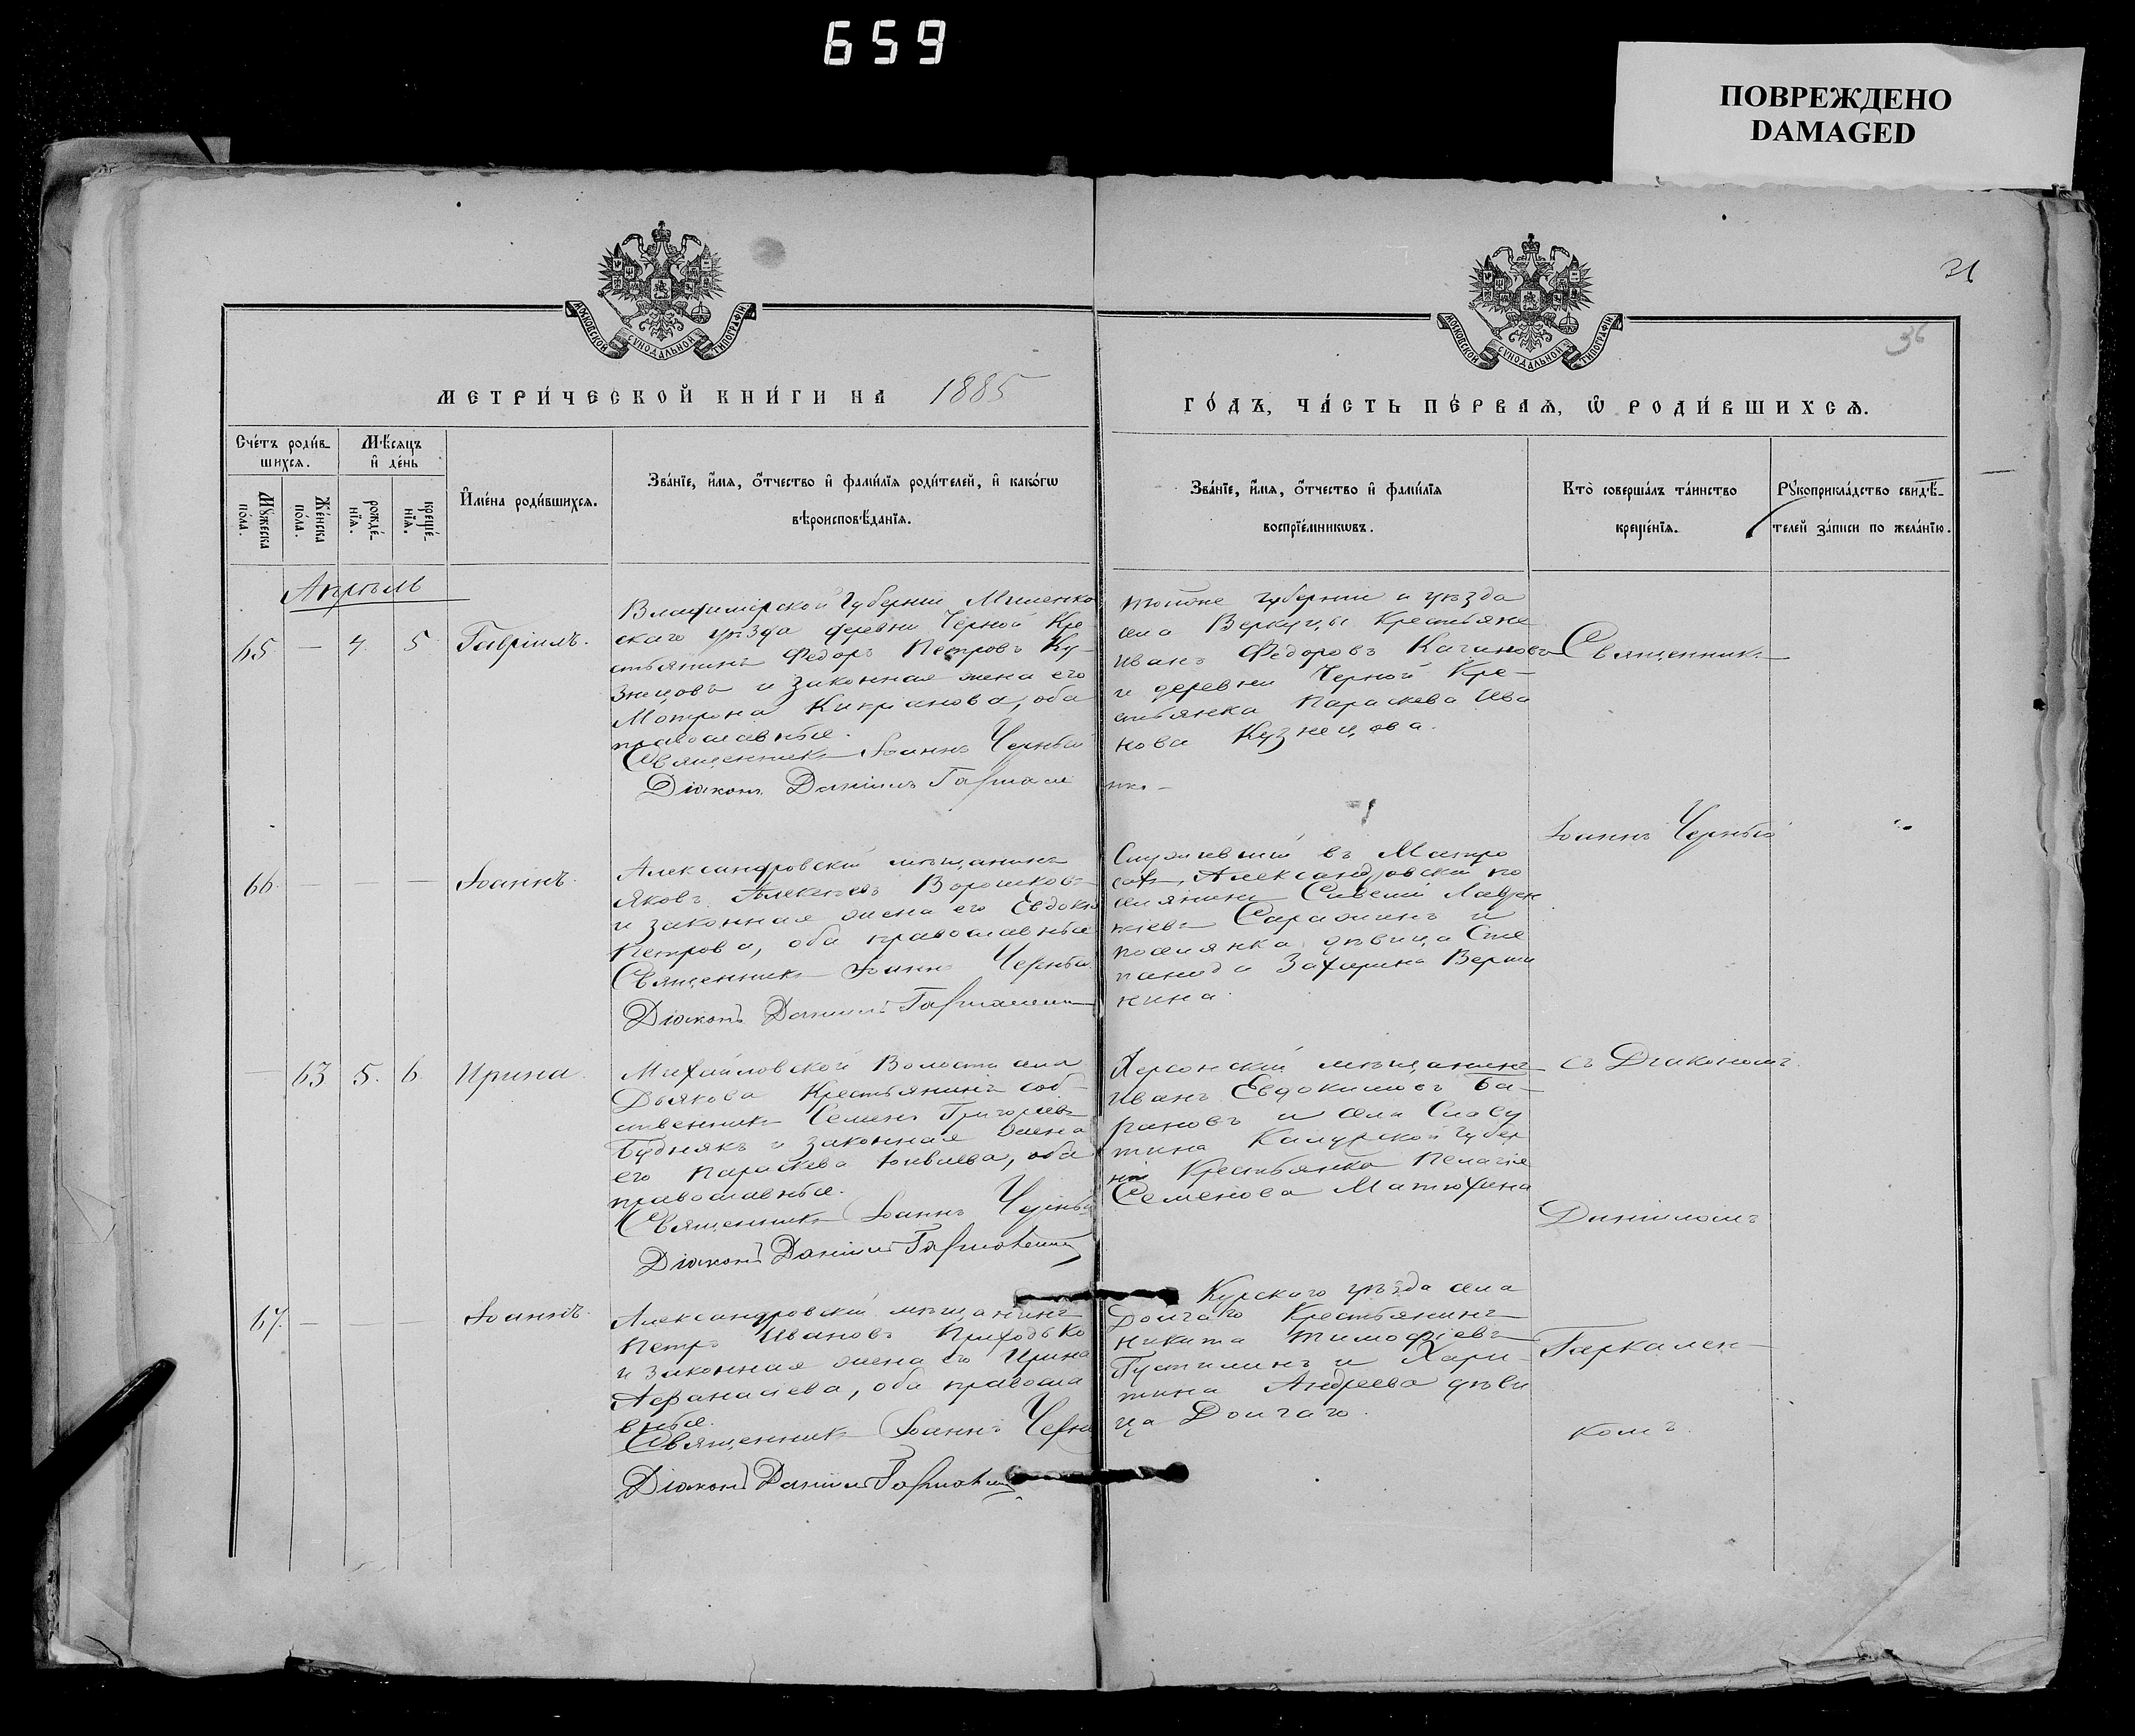 659
ПОВРЕЖДЕНО
DAMAGED
31
36
МОСКОВСКОЙ СѴНОДАЛЬНОЙ ТИПОГРАФІИ
МОСКОВСКОЙ СѴНОДАЛЬНОЙ ТИПОГРАФІИ
МЕТРИ́ЧЕСКОЙ КНИ́ГИ НА 1885
ГО́ДЪ, ЧА́СТЬ ПЕ́РВАѦ, Ѡ҆ РОДИ́ВШИХСѦ.
Сче́тъ роди́в-
шихсѧ.
Мꙋ́жеска
по́ла.
Же́нска
по́ла.
Мѣ́сѧцъ
и҆ де́нь
рожде́-
нїѧ.
креще́-
нїѧ.
И҆мена̀ роди́вшихсѧ.
Зва́нїе, и҆́мѧ, ѻ҆́тчество и҆ фами́лїѧ роди́телей, и҆ како́гѡ
вѣроисповѣ́данїѧ.
Зва́нїе, и҆́мѧ, ѻ҆́тчество и҆ фами́лїѧ
воспрїе́мникѡвъ.
Кто̀ соверша́лъ та́инство
креще́нїѧ.
Рꙋкоприкла́дство свидѣ́-
телей за́писи по жела́нїю.
Апрѣль
65 — 4. 5 Гавріилъ.
Владимірской Губерніи
скаго уѣзда деревни Черной Кре-
стьянинъ Федоръ Петровъ Ку-
знецовъ и законная жена его
Матрона Кипріанова, оба
православные.
Священникъ Іоаннъ Черный
Діаконъ Даніилъ Гаркален
ко —
тойже губерніи и уѣзда
села Крестьяне
Иванъ Федоровъ
и деревни Черной Кре-
стьянка Параскева Ива
нова Кузнецова.
Священникъ
Іоаннъ Черный
66. — — — Іоаннъ.
Александровскій мѣщанинъ
Яковъ Алексѣевъ
и законная жена его Евдокія
Петрова, оба православные
Священникъ Іоаннъ Черный
Діаконъ Даніилъ
Служившій въ Матро
сахъ, Александровскій по
селянинъ Савелій Лаврен
тіевъ и
поселянка дѣвица Сте
панида Захарина Верши
нина.
— 63 5. 6. Ирина.
Михайловской Волости села
Дьякова Крестьянинъ соб-
ственникъ Семенъ Григорьевъ
Будникъ и законная жена
его Параскева оба
православные.
Священникъ Іоаннъ Черный
Діаконъ Даніилъ
Херсонскій мѣщанинъ
Иванъ Евдокимовъ Ба-
рановъ и села
Калужской Губер
ніи Крестьянка Пелагія
Семенова Матюхина
съ Діакономъ
Даніиломъ
67. — — — Іоаннъ.
Александровскій мѣщанинъ
Петръ Ивановъ Приходько
и законная жена его Ирина
Афанасіева, оба правосла
вные.
Священникъ Іоаннъ Черный
Діаконъ Даніилъ
Курскаго уѣзда села
Долгаго Крестьянинъ
Никита Тимофѣевъ
и Хари-
тина Андреева дѣви
ца Долгаго.
Гаркален-
комъ.